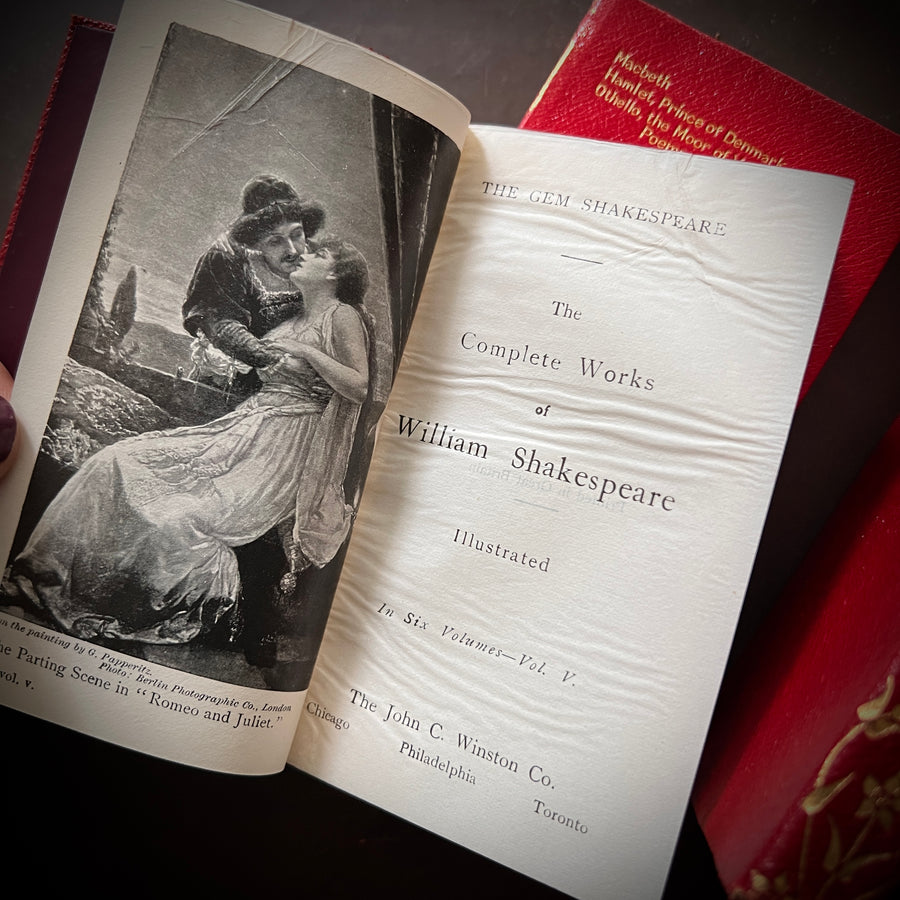 on the painting by G. Papperitz.
Photo: Berlin Photographic Co., London
he Parting Scene in "Romeo and Juliet."
vol. v.
THE GEM SHAKESPEARE
The
Complete Works
of
William Shakespeare
Illustrated
In Six Volumes—Vol. V.
The John C. Winston Co.
Chicago
Philadelphia
Toronto
Macbeth
Hamlet, Prince of Denmark
Othello, the Moor of
Poem